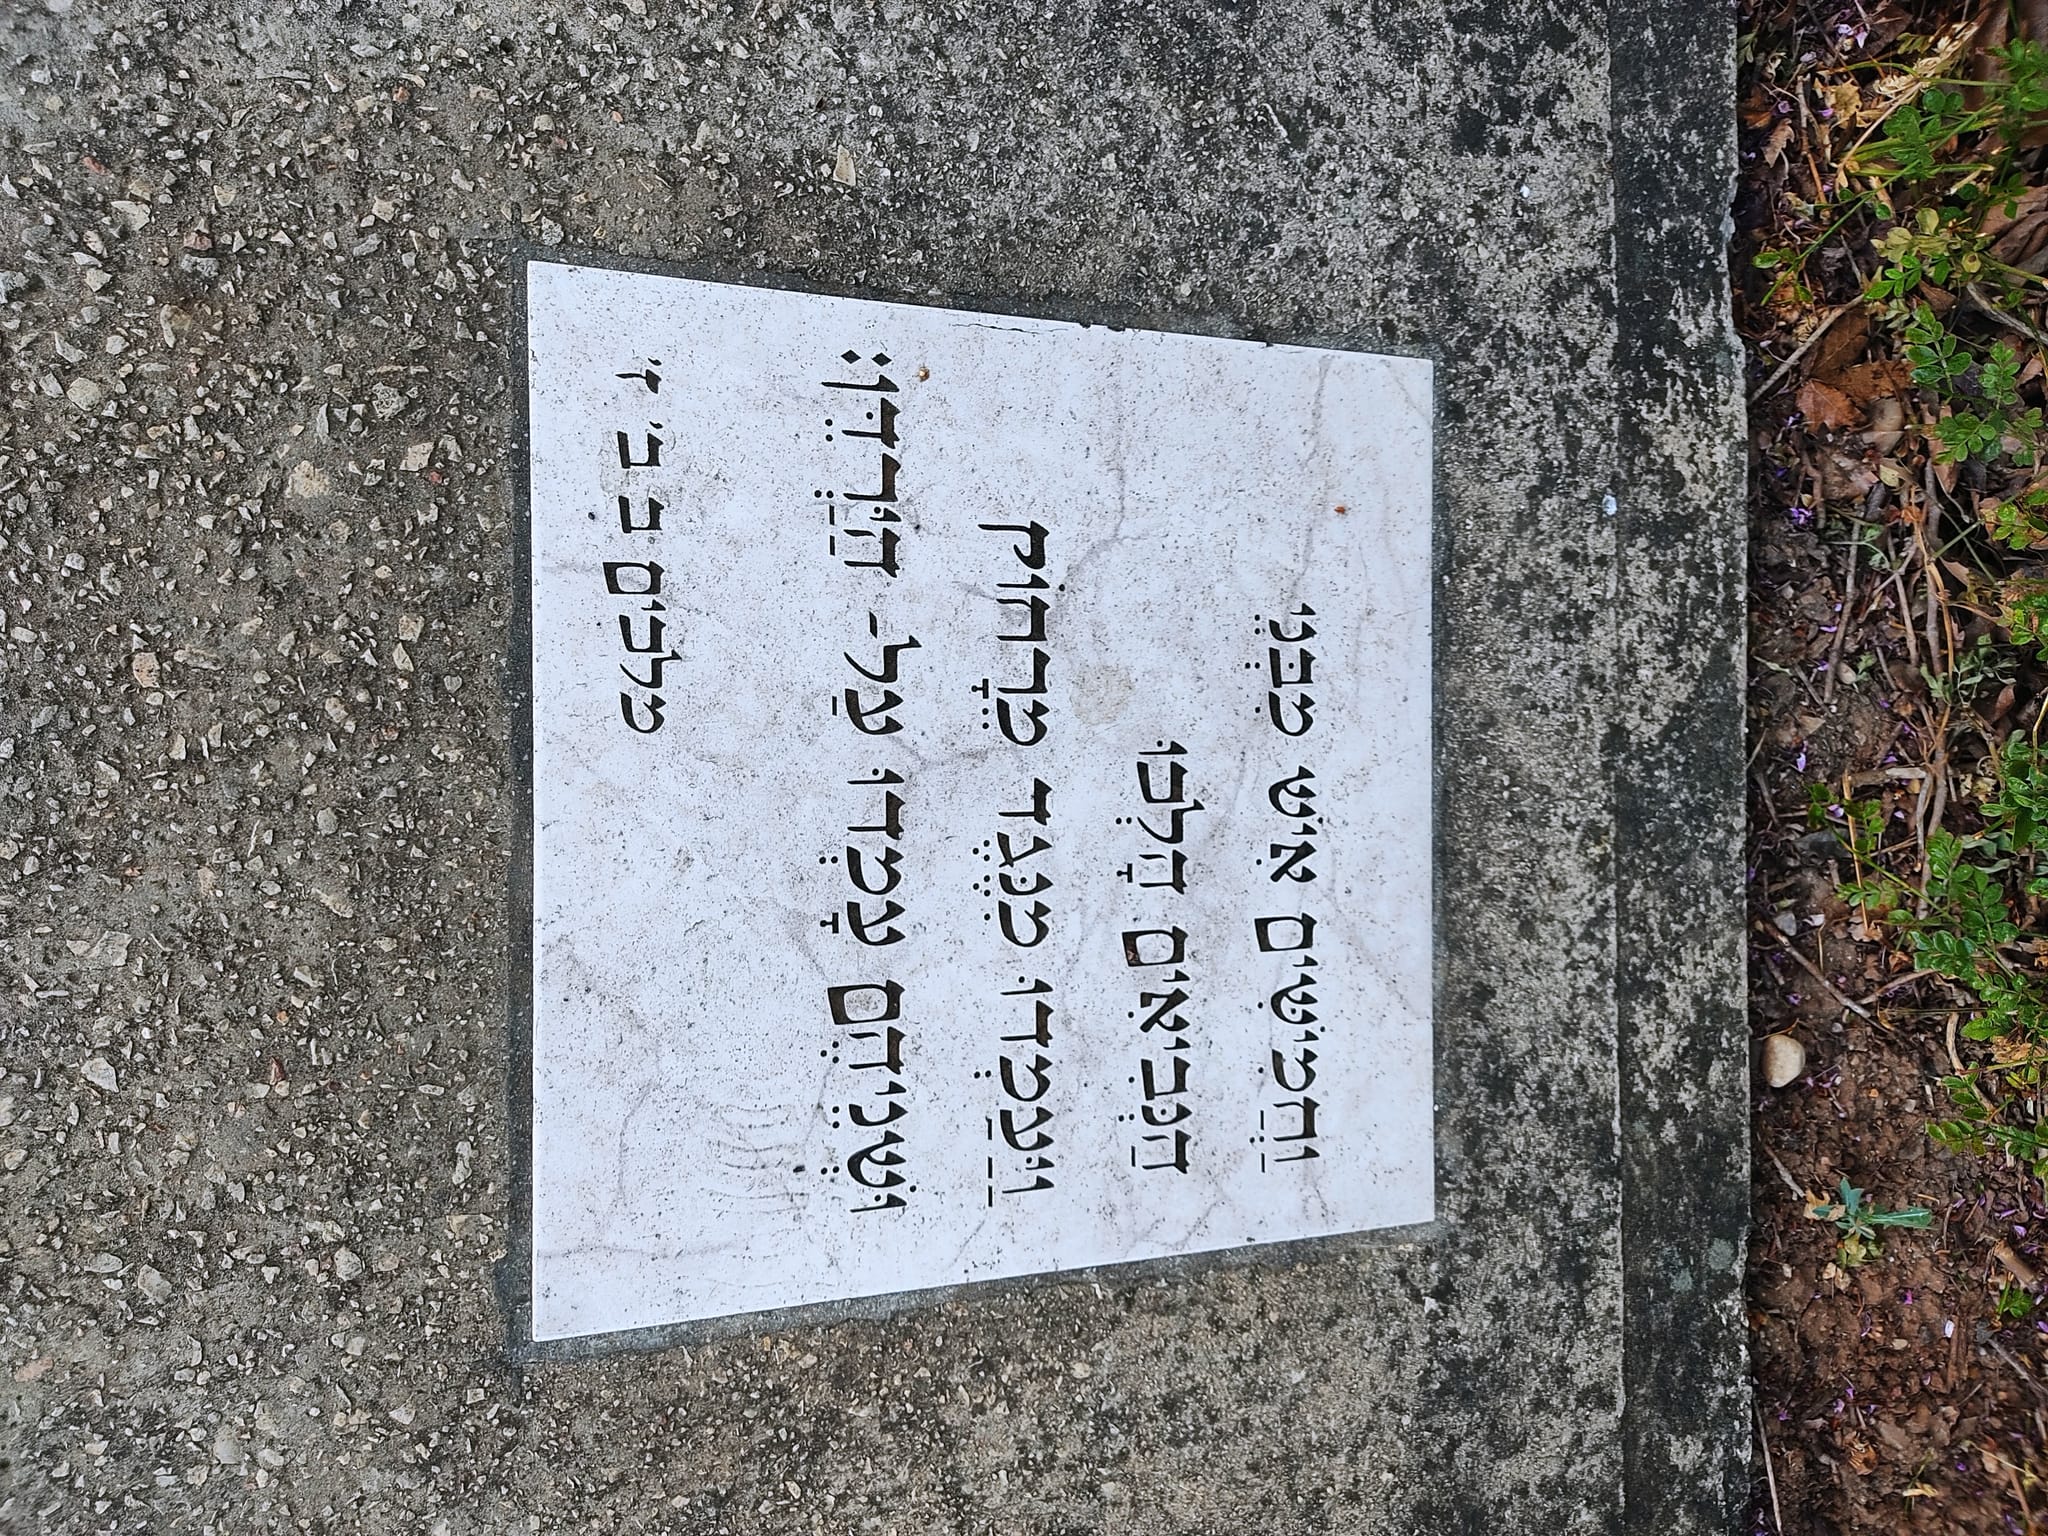 וַחֲמִשִּׁים אִישׁ מִבְּנֵי
הַנְּבִיאִים הָלְכוּ
וַיַּעַמְדוּ מִנֶּגֶד מֵרָחוֹק
וּשְׁנֵיהֶם עָמְדוּ עַל־ הַיַּרְדֵּן׃
מלכים ב ב׳ ז׳